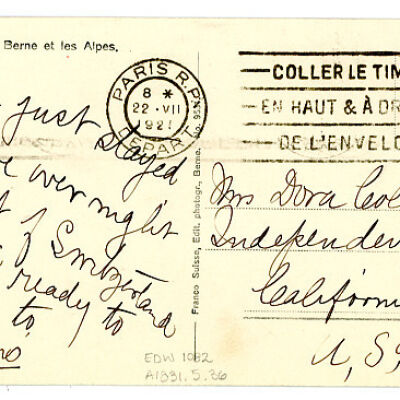 Berne et les Alpes.
PARIS R.P.
8 *
22 · VII
1921
DEPART
COLLER LE TIM
EN HAUT & À DR
DE L'ENVELO
just stayed
over night
of Switzerland
ready to
to
Franco Suisse, Edit. photogr., Berne.
Mrs Dora Col
Independen
California
U, S,
EDW 1082
A1331.5.36